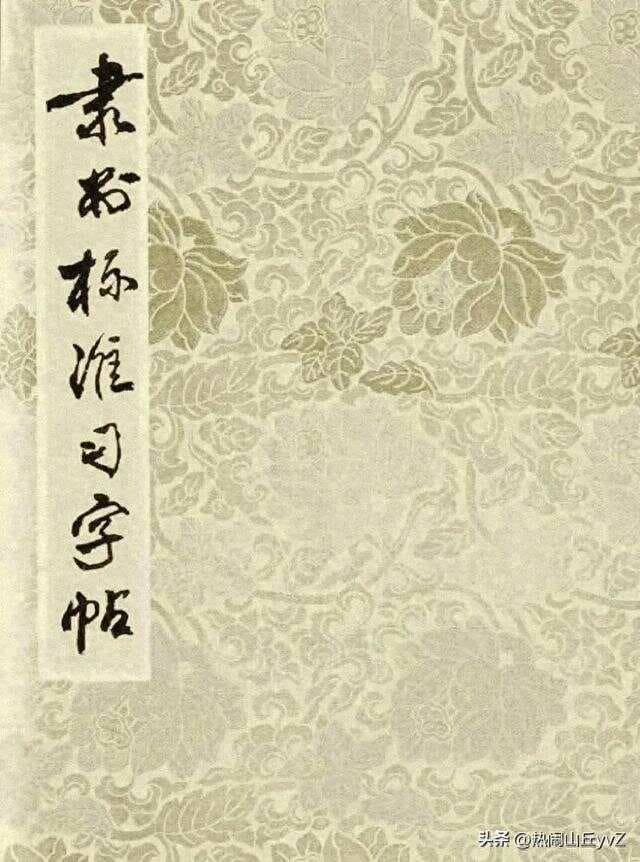 隶书标准习字帖
头条 @热闹山丘yvZ